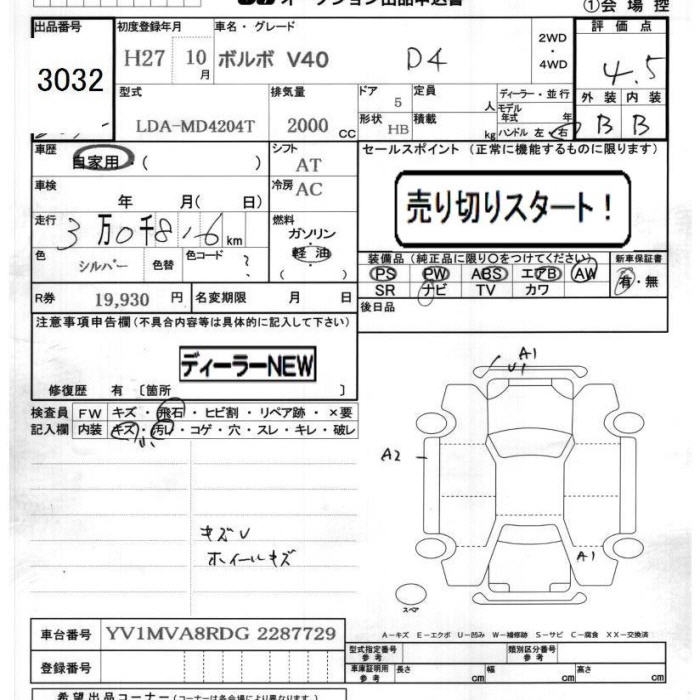 オークション出品申込書
①会場控
出品番号 初度登録年月 車名・グレード 評価点
3032 H27 10月 ボルボ V40 D4 2WD・4WD 4.5
型式 排気量 ドア 定員 ディーラー・並行 外装 内装
LDA-MD4204T 2000cc 5 人 モデル年式 年 B B
形状 HB 積載 kg ハンドル 左・右
車歴 自家用・( ) シフト AT セールスポイント (正常に機能するものに限ります)
車検 年 月(日) 冷房 AC 売り切りスタート!
走行 3万0千816km 燃料 ガソリン 軽油 ( )
色 シルバー 色替 色コード ? 装備品 (純正品に限り○をつけてください) 新車保証書
PS PW ABS エアB AW 有・無
SR ナビ TV カワ
R券 19,930円 名変期限 月 日 後日品
注意事項申告欄 (不具合内容等は具体的に記入して下さい)
ディーラーNEW
修復歴 有 〔箇所 〕
検査員 FW キズ・飛石・ヒビ割・リペア跡・×要
記入欄 内装 キズ・汚れ・コゲ・穴・スレ・キレ・破レ
A1
U1
A2
A1
キズU
ホイールキズ
スペア
A-キズ E-エクボ U-凹み W-補修跡 S-サビ C-腐食 XX-交換済
車台番号 YV1MVA8RDG 2287729
型式指定番号 参考 類別区分番号 参考
登録番号 車庫証明用 参考 長さ cm 幅 cm 高さ cm
希望出品コーナー (コーナーは各会場により異なります。)